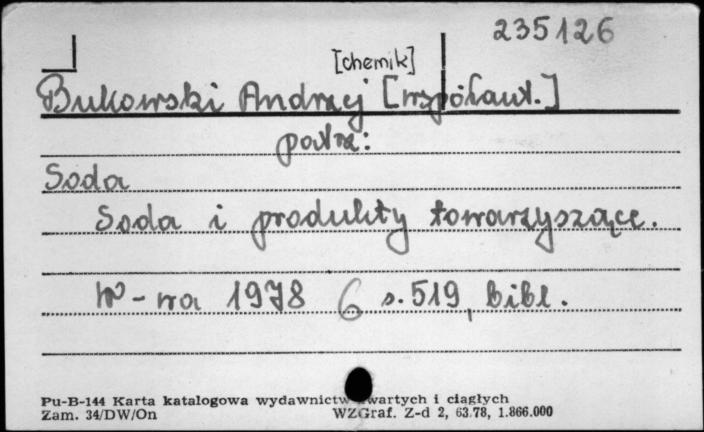 235126
[chemik]
Bukowski Andrzej [współaut.]
patrz:
Soda
Soda i produkty towarzyszące.
W-wa 1978 6 s. 519, bibl.
Pu-B-144 Karta katalogowa wydawnictw zwartych i ciągłych
Zam. 34/DW/On WZGraf. Z-d 2, 63.78, 1.866.000